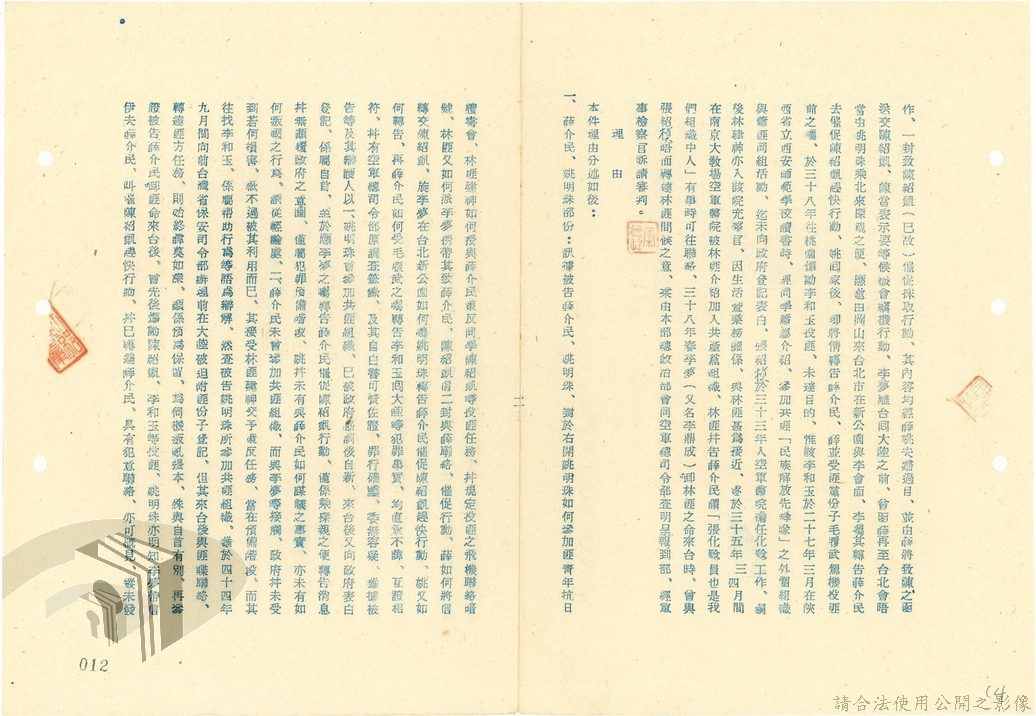 作、一封致陳紹凱（已故）催促採取行動、其內容均經薛姚夫婦過目、並由薛將致陳之函
淚交陳紹凱、陳當表示要等候機會矚機行動、李夢離台回大陸之前、曾函薛再至台北會晤
當由姚明珠乘北來探親之便、應邀由岡山來台北市在新公園與李會面、李囑其轉告薛介民
去催促陳紹凱趕快行動、姚回家後、即將情轉告薛介民、薛並受匪黨份子毛響武駕機投匪
前之囑、於三十八年往桃園煽動李和玉投匪、未達目的、惟該李和玉於二十七年三月在陝
西省立西安師範學校讀書時、經同學 介紹、參加共匪「民族解放先鋒隊」之外圍組織
與 匪同組活動、迄未向政府登記表白、張紹 於三十三年入空軍醫院擔任化驗工作、嗣
後林建神亦入該院充醫官、因生活並業務關係、與林匪甚為接近、 於三十五年三四月間
在南京大教場空軍醫院被林匪介紹加入共產黨組織、林匪并告薛介民謂「張化驗員也是我
們組織中人」有事時可往聯絡、三十八年春李夢（又名李鼎成）卸林匪之命來台時、曾與
張紹 晤面轉達林匪問候之意、案由本部總政治部會同空軍總司令部查明呈報到部、經軍
事檢察官訴請審判。
理　由
本件理由分述如後：
一、薛介民、姚明珠部份：訊據被告薛介民、姚明珠、對於右開姚明珠如何參加匪青年抗日
二
讀書會、林匪建神如何授與薛介民策反同學陳紹凱等投匪任務、并規定投匪之飛機聯絡暗
號、林匪又如何派李夢携帶其致薛介民、陳紹凱信二封與薛聯絡、催促行動、薛如何將信
轉交陳紹凱、旋李夢在台北新公園如何囑姚明珠轉告薛介民催促陳紹凱趕快行動、姚又如
何轉告、再薛介民如何受毛 武之囑轉告李和玉回大陸等犯罪事實、均直承不諱、互證相
符、并有空軍總司令部原調查筆錄、及其自白書可資佐證、罪行確鑿、委無容疑、雖據被
告等及其辯護人以一、姚明珠曾參加共匪組織、已被政府 訓後自新、來台後又向政府表白
登記、係屬自首、至於應李夢之囑轉告薛介民催促陳紹凱行動、僅係乘探親之便、轉告消息
并無顛覆政府之意圖、僅屬犯罪預備階段、姚并未有與薛介民如何謀議之事實、亦未有如
何叛國之行為、請從輕論處、二、薛介民未曾參加共匪組織、而與李夢等接觸、政府并未受
到若何損害、祇不過被其利用而已、其接受林匪建神交予策反任務、當在預備階段、而其
往找李和玉、係屬幫助行為等語為辯解、然查被告姚明珠所參加共匪組織、雖於四十四年
九月間向前台灣省保安司令部辦理前在大陸被迫附匪份子登記、但其來台後與匪諜聯絡、
轉達匪方任務、則始終諱莫如深、顯係預為保留、為伺機叛亂張本、殊與自首有別、再參
證被告薛介民卸匪命來台後、首先後煽動陳紹凱、李和玉等投匪、姚明珠亦明知李夢帶信
伊夫薛介民、叫催陳紹凱趕快行動、并已轉達薛介民、具有犯意聯絡、亦可 見、縱未發
012
請合法使用公開之影像